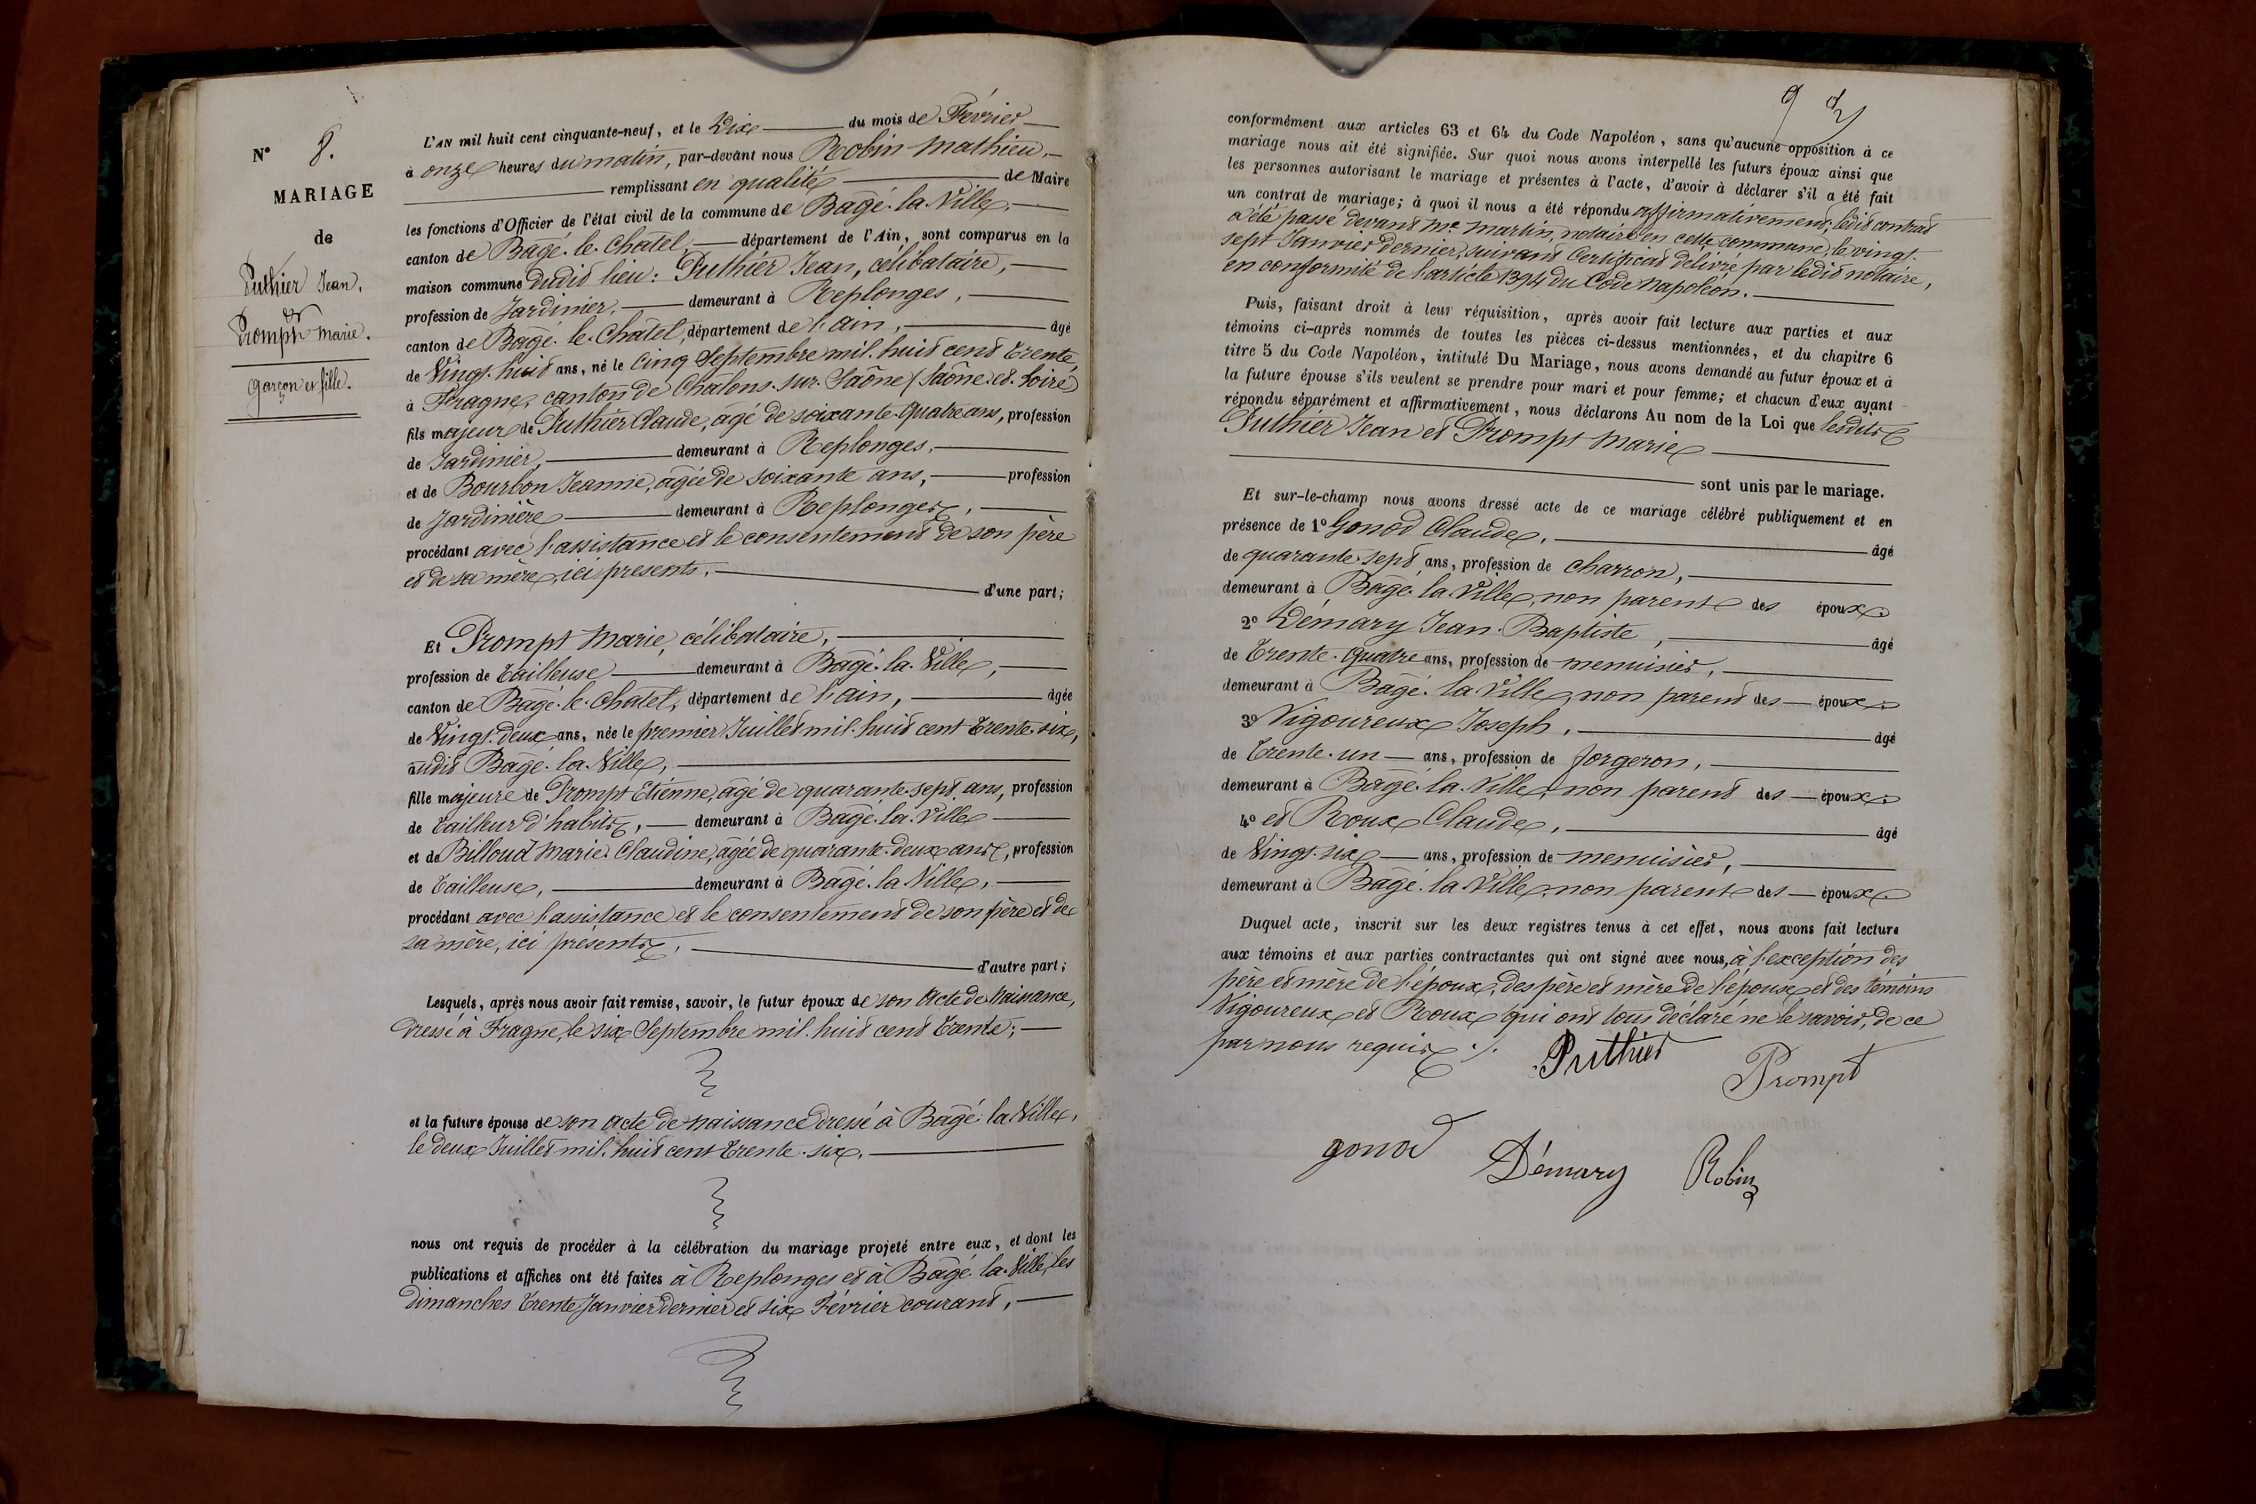 N° 8.
MARIAGE
de
Puthier Jean.
et
Prompt Marie.
Garçon et fille.
L'AN mil huit cent cinquante-neuf, et le Dix du mois de Février
à onze heures du matin, par-devant nous Robin Mathieu,
remplissant en qualité de Maire
les fonctions d'Officier de l'état civil de la commune de Bagé-la-Ville,
canton de Bagé-le-Chatel, département de l'Ain, sont comparus en la
maison commune dudit lieu : Puthier Jean, célibataire,
profession de Jardinier, demeurant à Replonges,
canton de Bagé-le-Chatel, département de l'ain, âgé
de Vingt-huit ans, né le cinq Septembre mil-huit cent trente
à Fragne, canton de Chalons-sur-Saône (Saône-et-Loire)
fils majeur de Puthier Claude, âgé de soixante-quatre ans, profession
de Jardinier, demeurant à Replonges,
et de Bourbon Jeanne, âgée de soixante ans, profession
de Jardinière demeurant à Replonges,
procédant avec l'assistance et le consentement de son père
et de sa mère, ici presents. d'une part;
Et Prompt Marie, célibataire,
profession de tailleuse demeurant à Bagé-la-Ville,
canton de Bagé-le-Chatel, département de l'ain, âgée
de Vingt-deux ans, née le premier Juillet mil-huit cent trente-six,
audit Bagé-la-Ville,
fille majeure de Prompt Etienne, âgé de quarante-sept ans, profession
de tailleur d'habits, demeurant à Bagé-la-Ville
et de Billoud Marie-Claudine, âgée de quarante-deux ans, profession
de tailleuse, demeurant à Bagé-la-Ville,
procédant avec l'assistance et le consentement de son père et de
sa mère, ici présents, d'autre part;
Lesquels, après nous avoir fait remise, savoir, le futur époux de son acte de naissance,
dressé à Fragne, le six Septembre mil-huit cent trente;
et la future épouse de son acte de naissance dressé à Bagé-la-Ville,
le deux Juillet mil-huit cent trente-six.
nous ont requis de procéder à la célébration du mariage projeté entre eux, et dont les
publications et affiches ont été faites à Replonges et à Bagé-la-Ville, les
dimanches trente Janvier dernier et six Février courant,
9
conformément aux articles 63 et 64 du Code Napoléon, sans qu'aucune opposition à ce
mariage nous ait été signifiée. Sur quoi nous avons interpellé les futurs époux ainsi que
les personnes autorisant le mariage et présentes à l'acte, d'avoir à déclarer s'il a été fait
un contrat de mariage; à quoi il nous a été répondu affirmativement; ledit contrat
a été passé devant Me Martin, notaire en cette commune, le vingt-
sept Janvier dernier, suivant Certificat délivré par ledit notaire,
en conformité de l'article 1394 du Code Napoléon.
Puis, faisant droit à leur réquisition, après avoir fait lecture aux parties et aux
témoins ci-après nommés de toutes les pièces ci-dessus mentionnées, et du chapitre 6
titre 5 du Code Napoléon, intitulé Du Mariage, nous avons demandé au futur époux et à
la future épouse s'ils veulent se prendre pour mari et pour femme; et chacun d'eux ayant
répondu séparément et affirmativement, nous déclarons Au nom de la Loi que lesdits
Puthier Jean et Prompt Marie
sont unis par le mariage.
Et sur-le-champ nous avons dressé acte de ce mariage célébré publiquement et en
présence de 1° Gonod Claude, âgé
de quarante-sept ans, profession de charron,
demeurant à Bagé-la-Ville, non parent des époux.
2° Démary Jean-Baptiste, âgé
de trente-quatre ans, profession de menuisier,
demeurant à Bagé-la-Ville, non parent des époux.
3° Vigoureux Joseph, âgé
de trente-un ans, profession de forgeron,
demeurant à Bagé-la-Ville, non parent des époux.
4° et Roux Claude, âgé
de Vingt-six ans, profession de menuisier,
demeurant à Bagé-la-Ville, non parent des époux.
Duquel acte, inscrit sur les deux registres tenus à cet effet, nous avons fait lecture
aux témoins et aux parties contractantes qui ont signé avec nous, à l'exception des
père et mère de l'époux, des père et mère de l'épouse et des témoins
Vigoureux et Roux qui ont tous déclaré ne le savoir, de ce
par nous requis ./.
Puthier Prompt
gonod Démary Robin